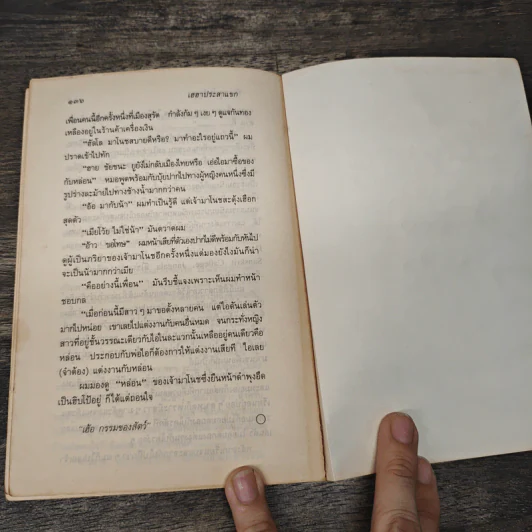 ๑๓๒
เฮฮาประสาแขก
เพื่อนคนนี้อีกครั้งหนึ่งที่เมืองสุรัต กำลังก้ม ๆ เงย ๆ ดูแจกันทอง
เหลืองอยู่ในร้านค้าเครื่องเงิน
“ฮัลโล มาโนชสบายดีหรือ? มาทำอะไรอยู่แถวนี้” ผม
ปราดเข้าไปทัก
“ฮาย ชัยชนะ ยูยังไม่กลับเมืองไทยหรือ เอ่อไอมาซื้อของ
กับหล่อน” หมอพูดพร้อมกับบุ้ยปากไปทางผู้หญิงคนหนึ่งซึ่งมี
รูปร่างละม้ายไปทางช้างน้ำมากกว่าคน
“อ้อ มากับน้า” ผมทำเป็นรู้ดี แต่เจ้ามาโนชสะดุ้งเฮือก
สุดตัว
“เมียโว้ย ไม่ใช่น้า” มันตวาดผม
“อ้าว ขอโทษ” ผมหน้าเสียที่ตัวเองปากไม่ดีพร้อมกับหันไป
ดูผู้เป็นภริยาของเจ้ามาโนชอีกครั้งหนึ่งแต่มองยังไงมันก็น่า
จะเป็นน้ามากกว่าเมีย
“คืออย่างนี้เพื่อน” มันรีบชี้แจงเพราะเห็นผมทำหน้า
ชอบกล
“เมื่อก่อนนี้มีสาว ๆ มาขอตั้งหลายคน แต่ไอดันเล่นตัว
มากไปหน่อย เขาเลยไปแต่งงานกับคนอื่นหมด จนกระทั่งหญิง
สาวที่อยู่ชั้นวรรณะเดียวกับไอในละแวกนั้นเหลืออยู่คนเดียวคือ
หล่อน ประกอบกับพ่อไอก็ต้องการให้แต่งงานเสียที ไอเลย
(จำต้อง) แต่งงานกับหล่อน
ผมมองดู “หล่อน” ของเจ้ามาโนชซึ่งยืนหน้าดำพุงยืด
เป็นฮิปโปอยู่ ก็ได้แต่ถอนใจ
“เฮ้อ กรรมของสัตว์”